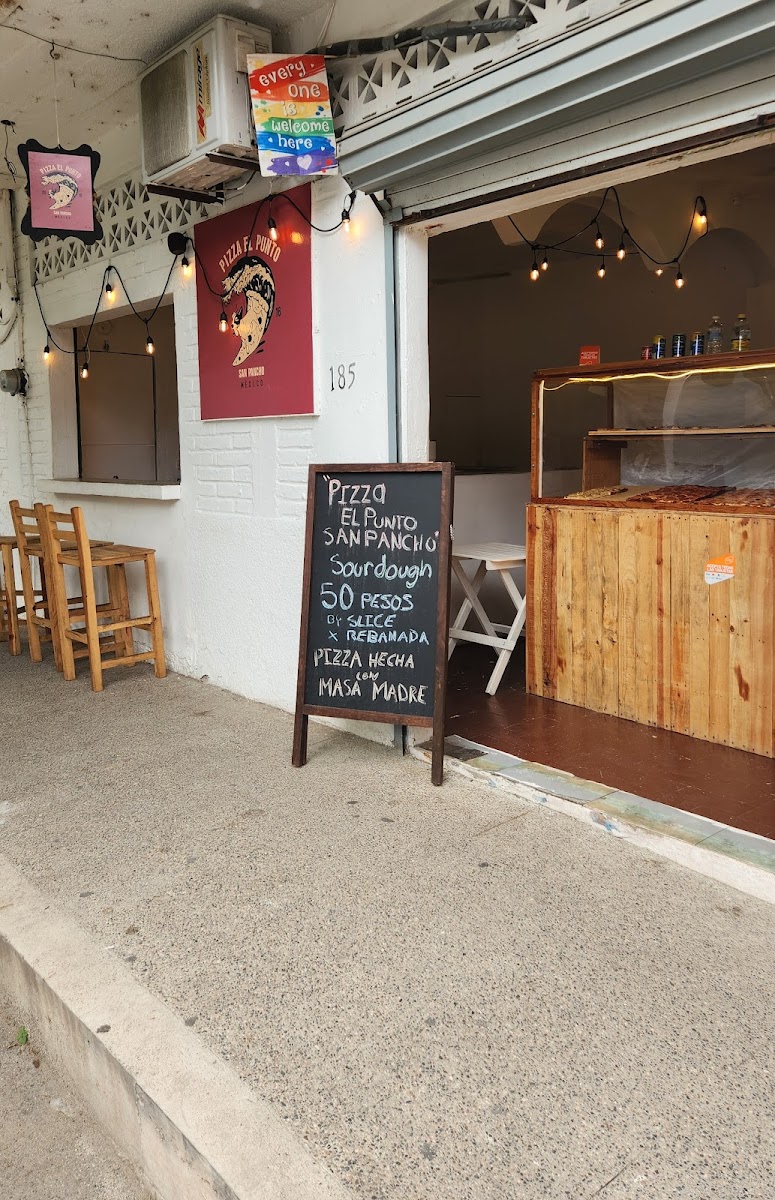 every
one
is
welcome
here
PIZZA EL PUNTO
SAN PANCHO
MEXICO
PIZZA EL PUNTO
18
SAN PANCHO
MEXICO
185
"PIZZA
EL PUNTO
SAN PANCHO"
Sourdough
50 PESOS
BY SLICE
X REBANADA
PIZZA HECHA
CON
MASA MADRE